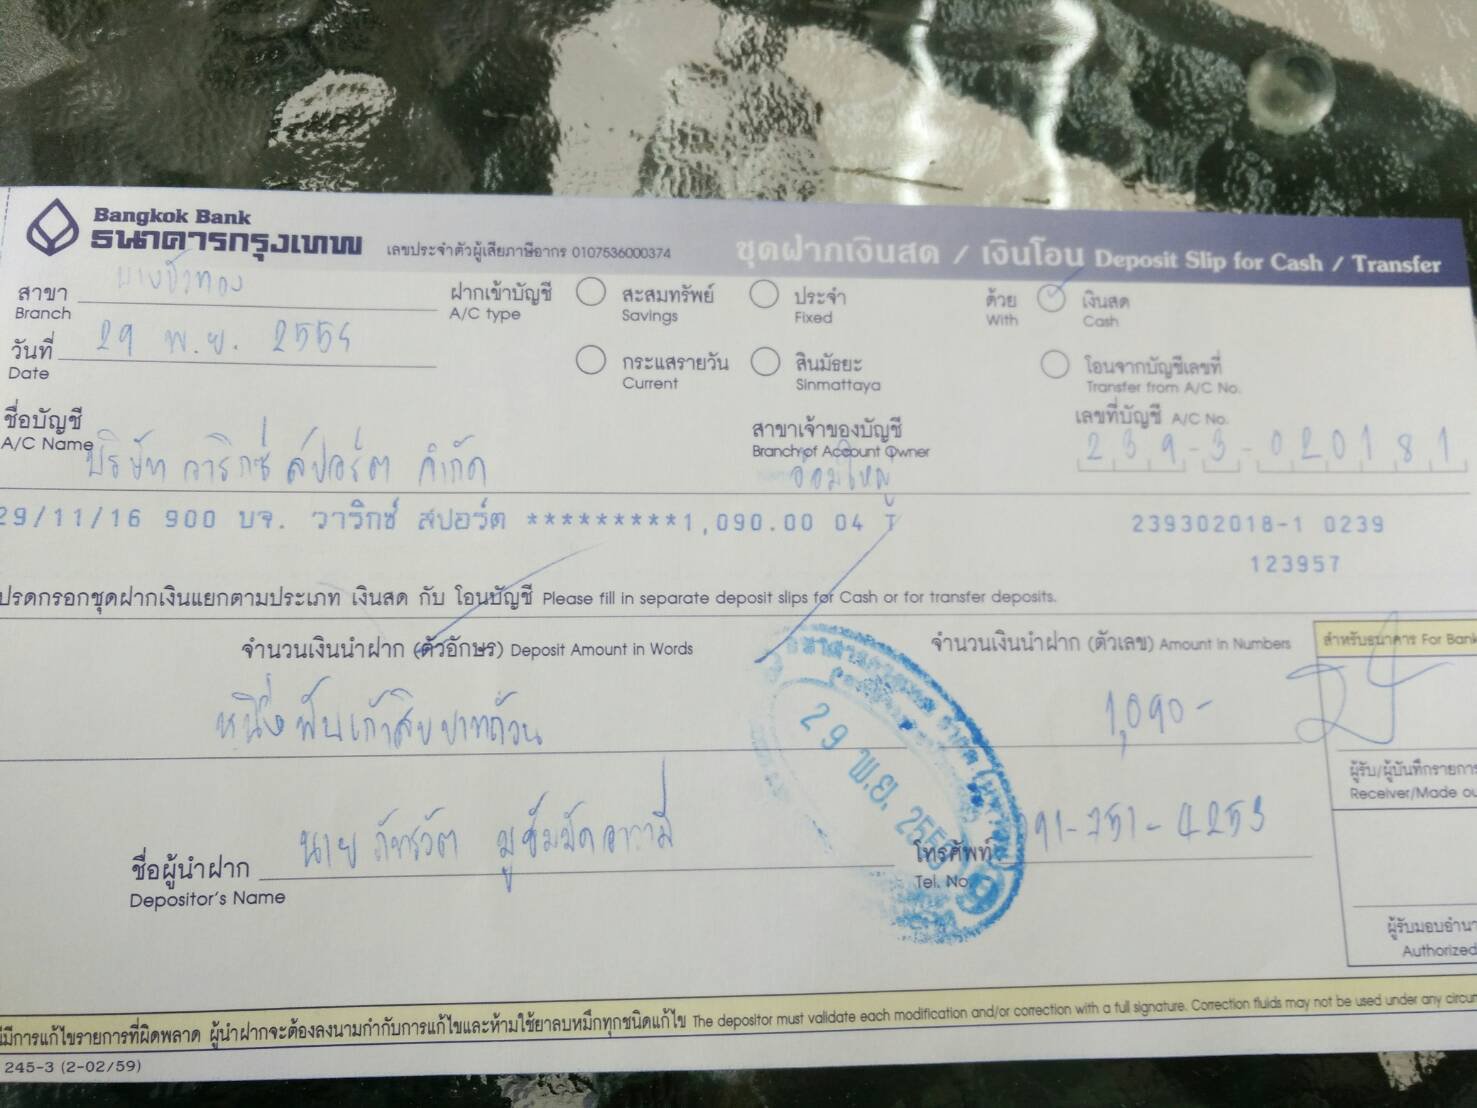 Bangkok Bank
ธนาคารกรุงเทพ
เลขประจำตัวผู้เสียภาษีอากร 0107536000374
ชุดฝากเงินสด / เงินโอน Deposit Slip for Cash / Transfer
สาขา บางบัวทอง
Branch
ฝากเข้าบัญชี
A/C type
สะสมทรัพย์
Savings
ประจำ
Fixed
ด้วย
With
เงินสด
Cash
วันที่ 29 พ.ย. 2559
Date
กระแสรายวัน
Current
สินมัธยะ
Sinmattaya
โอนจากบัญชีเลขที่
Transfer from A/C No.
ชื่อบัญชี
A/C Name
บริษัท วาริกซ์ สปอร์ต จำกัด
สาขาเจ้าของบัญชี
Branch of Account Owner
อ้อมใหญ่
เลขที่บัญชี A/C No.
239-3-020181
29/11/16 900 บจ. วาริกซ์ สปอร์ต *********1,090.00 04 T
239302018-1 0239
123957
ปรดกรอกชุดฝากเงินแยกตามประเภท เงินสด กับ โอนบัญชี Please fill in separate deposit slips for Cash or for transfer deposits.
จำนวนเงินนำฝาก (ตัวอักษร) Deposit Amount in Words
จำนวนเงินนำฝาก (ตัวเลข) Amount in Numbers
สำหรับธนาคาร For Bank
หนึ่งพันเก้าสิบบาทถ้วน
1,090-
29 พ.ย. 2559
ผู้รับ/ผู้บันทึกรายการ
Receiver/Made ou
ชื่อผู้นำฝาก นาย ภัทรวัต
Depositor's Name
โทรศัพท์ 091-751-4253
Tel. No.
ผู้รับมอบอำนา
Authorized
มีการแก้ไขรายการที่ผิดพลาด ผู้นำฝากจะต้องลงนามกำกับการแก้ไขและห้ามใช้ยาลบหมึกทุกชนิดแก้ไข The depositor must validate each modification and/or correction with a full signature. Correction fluids may not be used under any circum
245-3 (2-02/59)